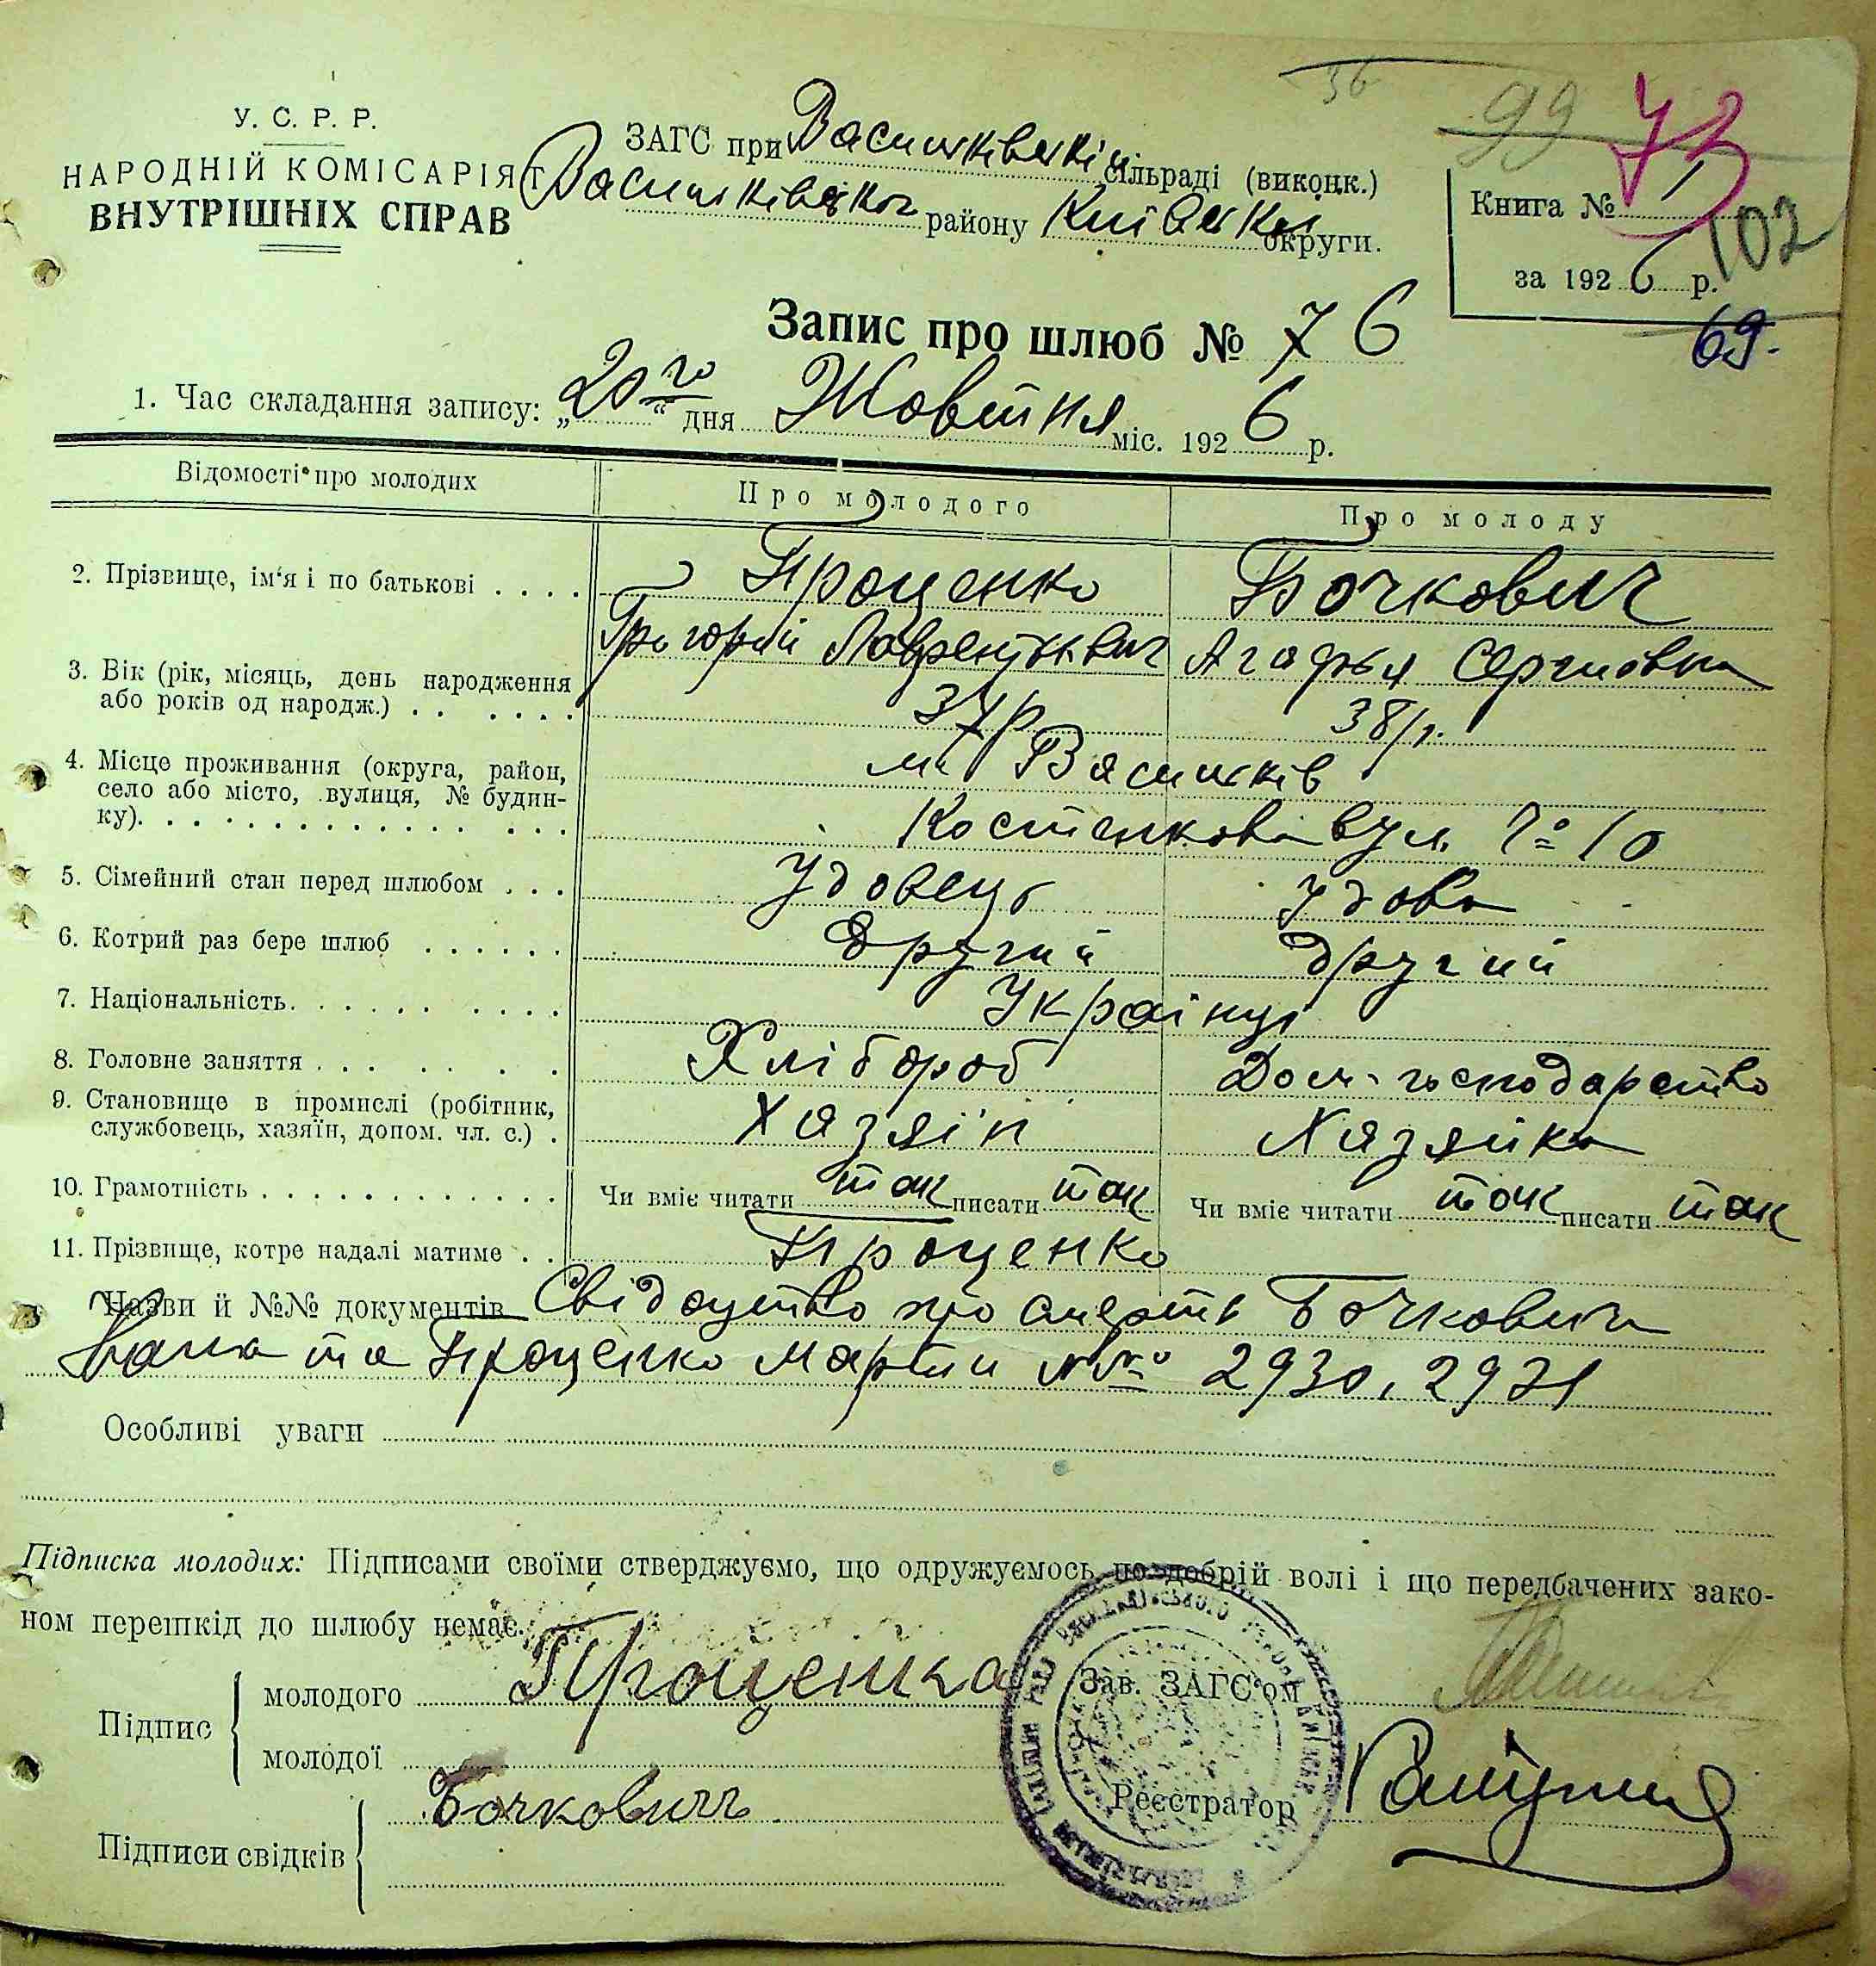 36
99 73
У. С. Р. Р.
НАРОДНІЙ КОМІСАРІЯТ
ВНУТРІШНІХ СПРАВ
ЗАГС при Васильківській сільраді (виконк.)
Васильківського району Київської округи.
Книга № 1
за 1926 р. 102
69.
Запис про шлюб № 76
1. Час складання запису: „20го“ дня Жовтня міс. 1926 р.
Відомості про молодих Про молодого Про молоду
2. Прізвище, ім'я і по батькові . . . . Проценко Бочкович
Григорій Лаврентієвич Агафья Сергиовна
3. Вік (рік, місяць, день народження
або років од народж.) . . . . . . . 37р 38р.
4. Місце проживання (округа, район, м. Васильків
село або місто, вулиця, № будин-
ку). . . . . . . . . . . . . . . Костенкова вул. № 10
5. Сімейний стан перед шлюбом . . . Удовець Удова
6. Котрий раз бере шлюб . . . . . . Другий Другий
7. Національність. . . . . . . . . . Українці
8. Головне заняття . . . . . . . . Хлібороб Дом-господарство
9. Становище в промислі (робітник,
службовець, хазяїн, допом. чл. с.) . Хазяїн Хазяйка
10. Грамотність . . . . . . . . . . . . . Чи вміє читати так писати так Чи вміє читати так писати так
11. Прізвище, котре надалі матиме . . Проценко
Назви й №№ документів Свідоцтво про смерть Бочковича
Івана та Проценко Марти №№ 2930, 2931
Особливі уваги
Підписка молодих: Підписами своїми стверджуємо, що одружуємось по добрій волі і що передбачених зако-
ном перешкід до шлюбу немає.
Підпис
молодого Проценка
молодої
Бочкович
Підписи свідків
Зав. ЗАГС'ом
Реєстратор